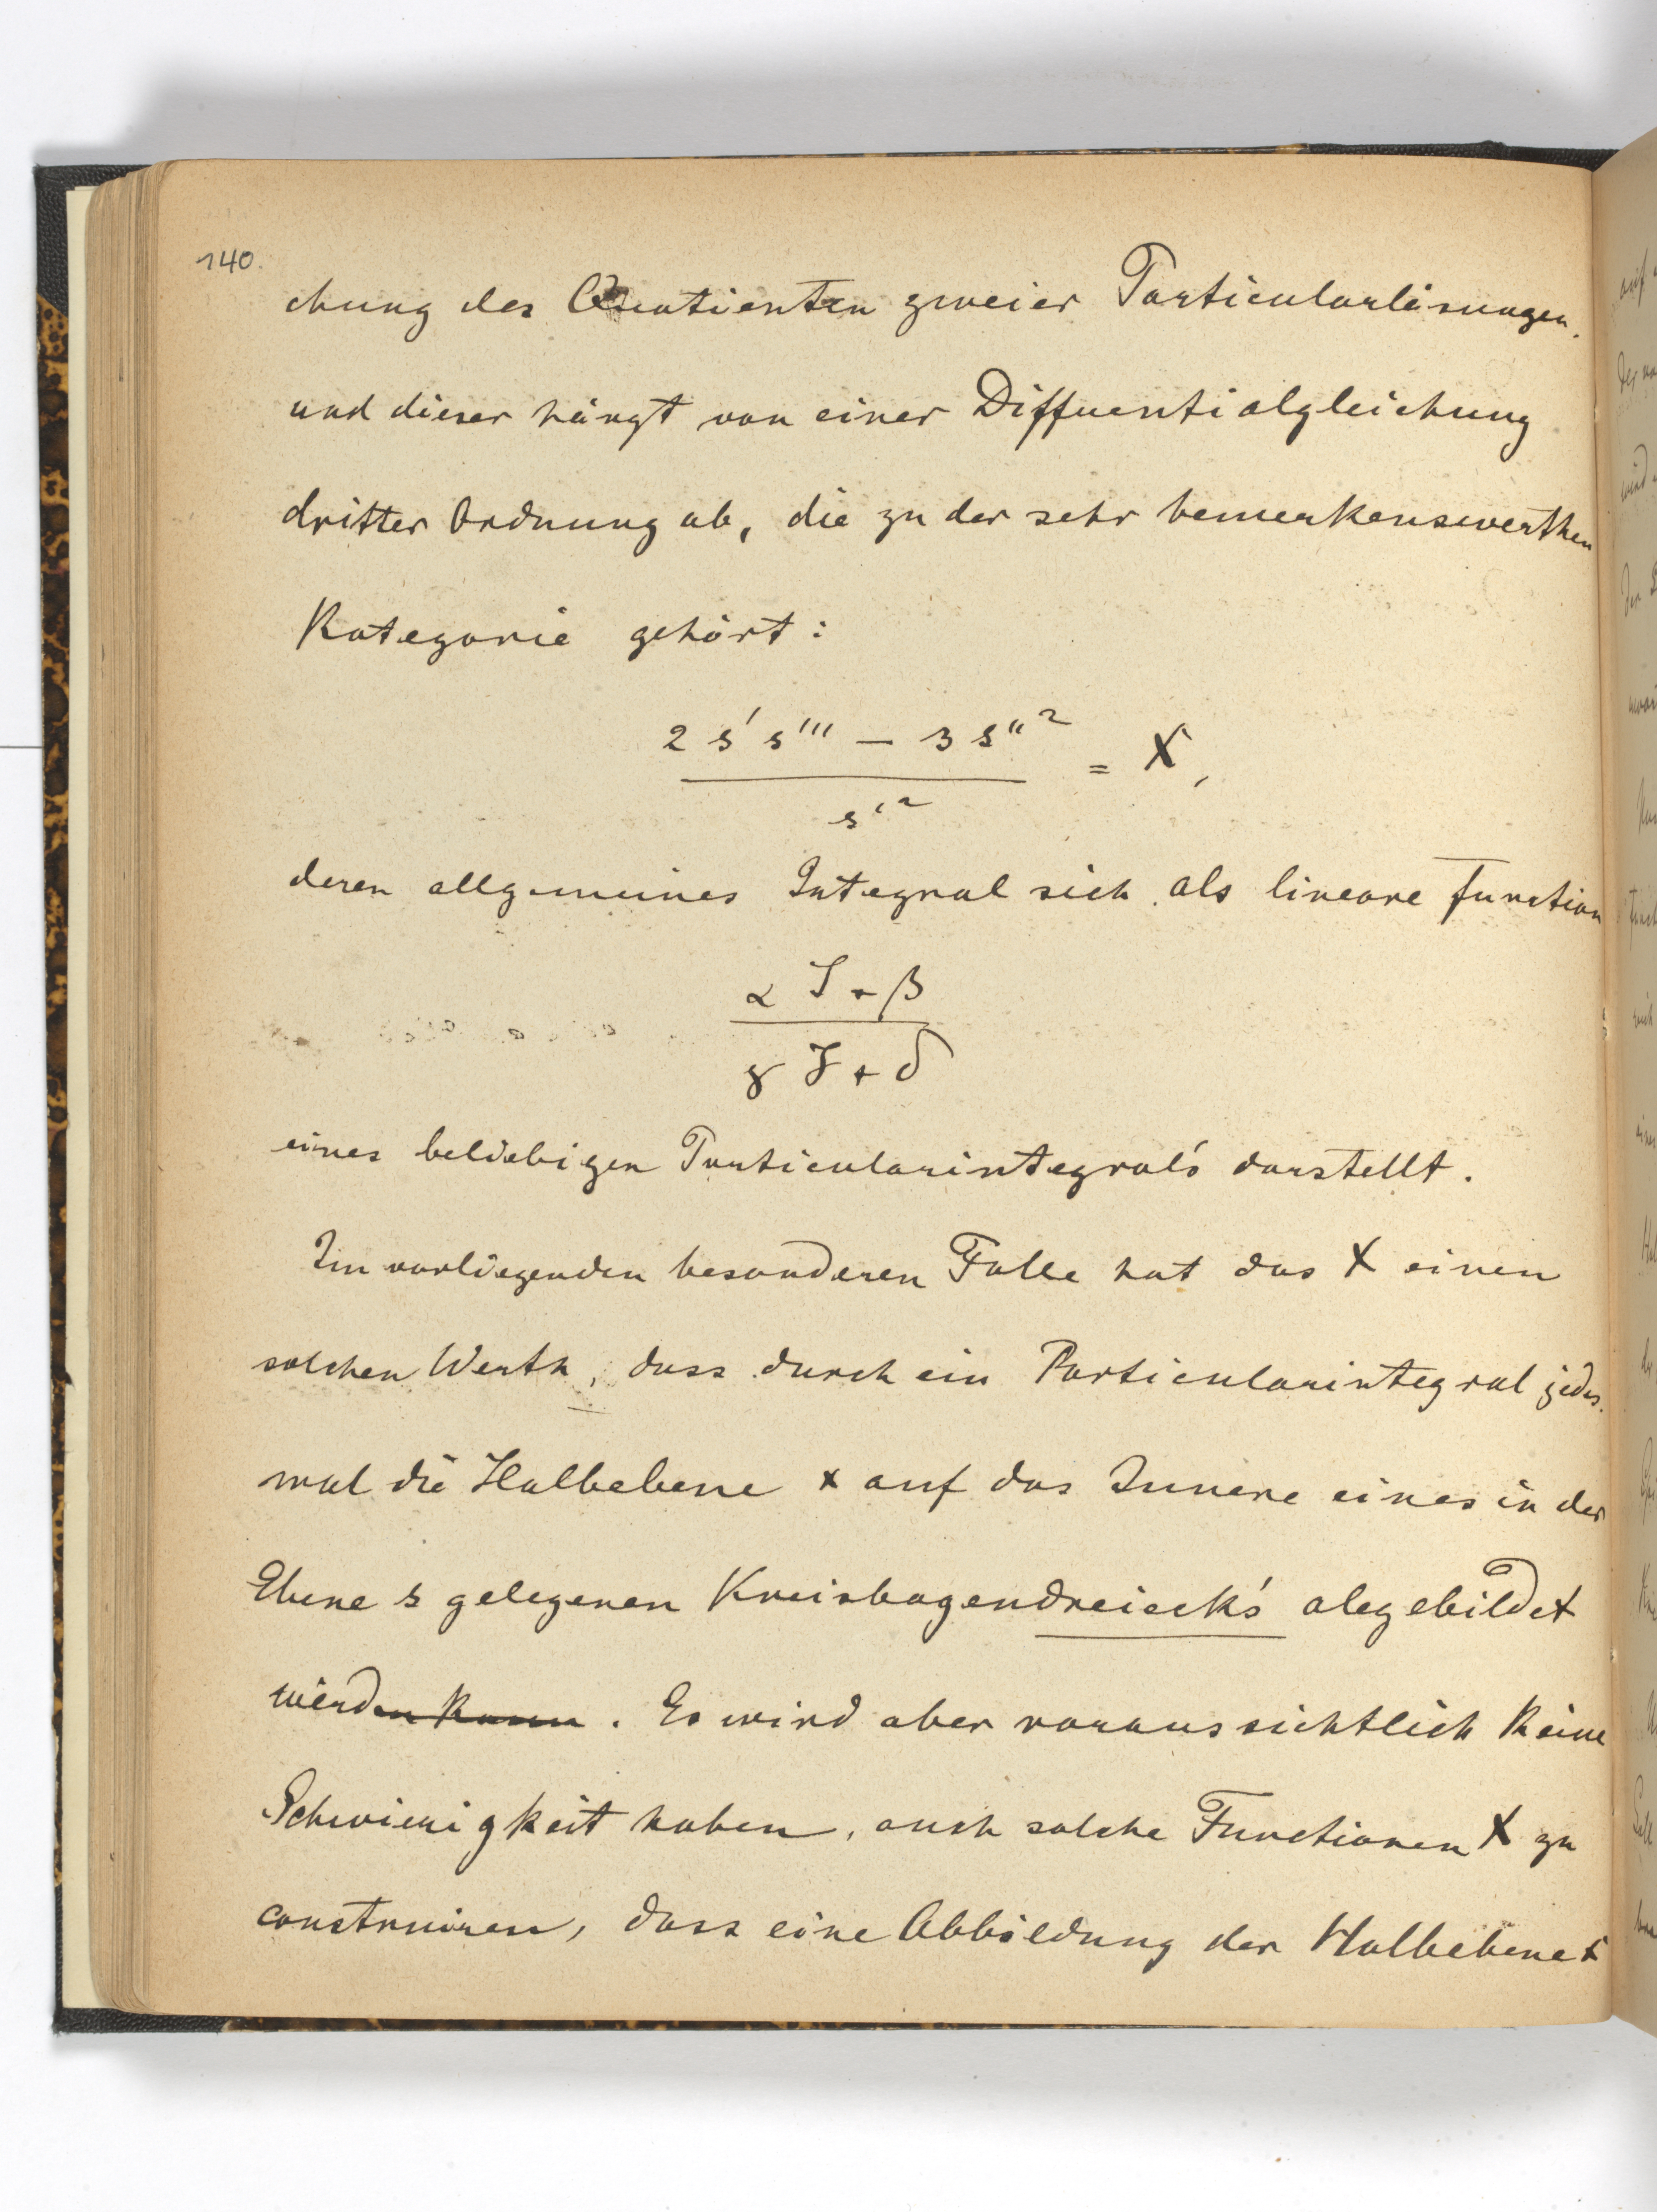 140.
chung des Quotienten zweier Particularlösungen.
und dieser hängt von einer Differentialgleichung
dritter Ordnung ab, die zu der sehr bemerkenswerthen
Kategorie gehört:
2 s' s''' — 3 s''²
= X,
s'²
deren allgemeines Integral sich als lineare Function
α J + β
γ J + δ
eines beliebigen Particularintegral's darstellt.
Im vorliegenden besonderen Falle hat das X einen
solchen Werth, dass durch ein Particularintegral jedes-
mal die Halbebene x auf das Innere eines in der
Ebene s gelegenen Kreisbogendreieck's abgebildet
werden kann. Es wird aber voraussichtlich keine
Schwierigkeit haben, auch solche Functionen X zu
construiren, dass eine Abbildung der Halbebene x